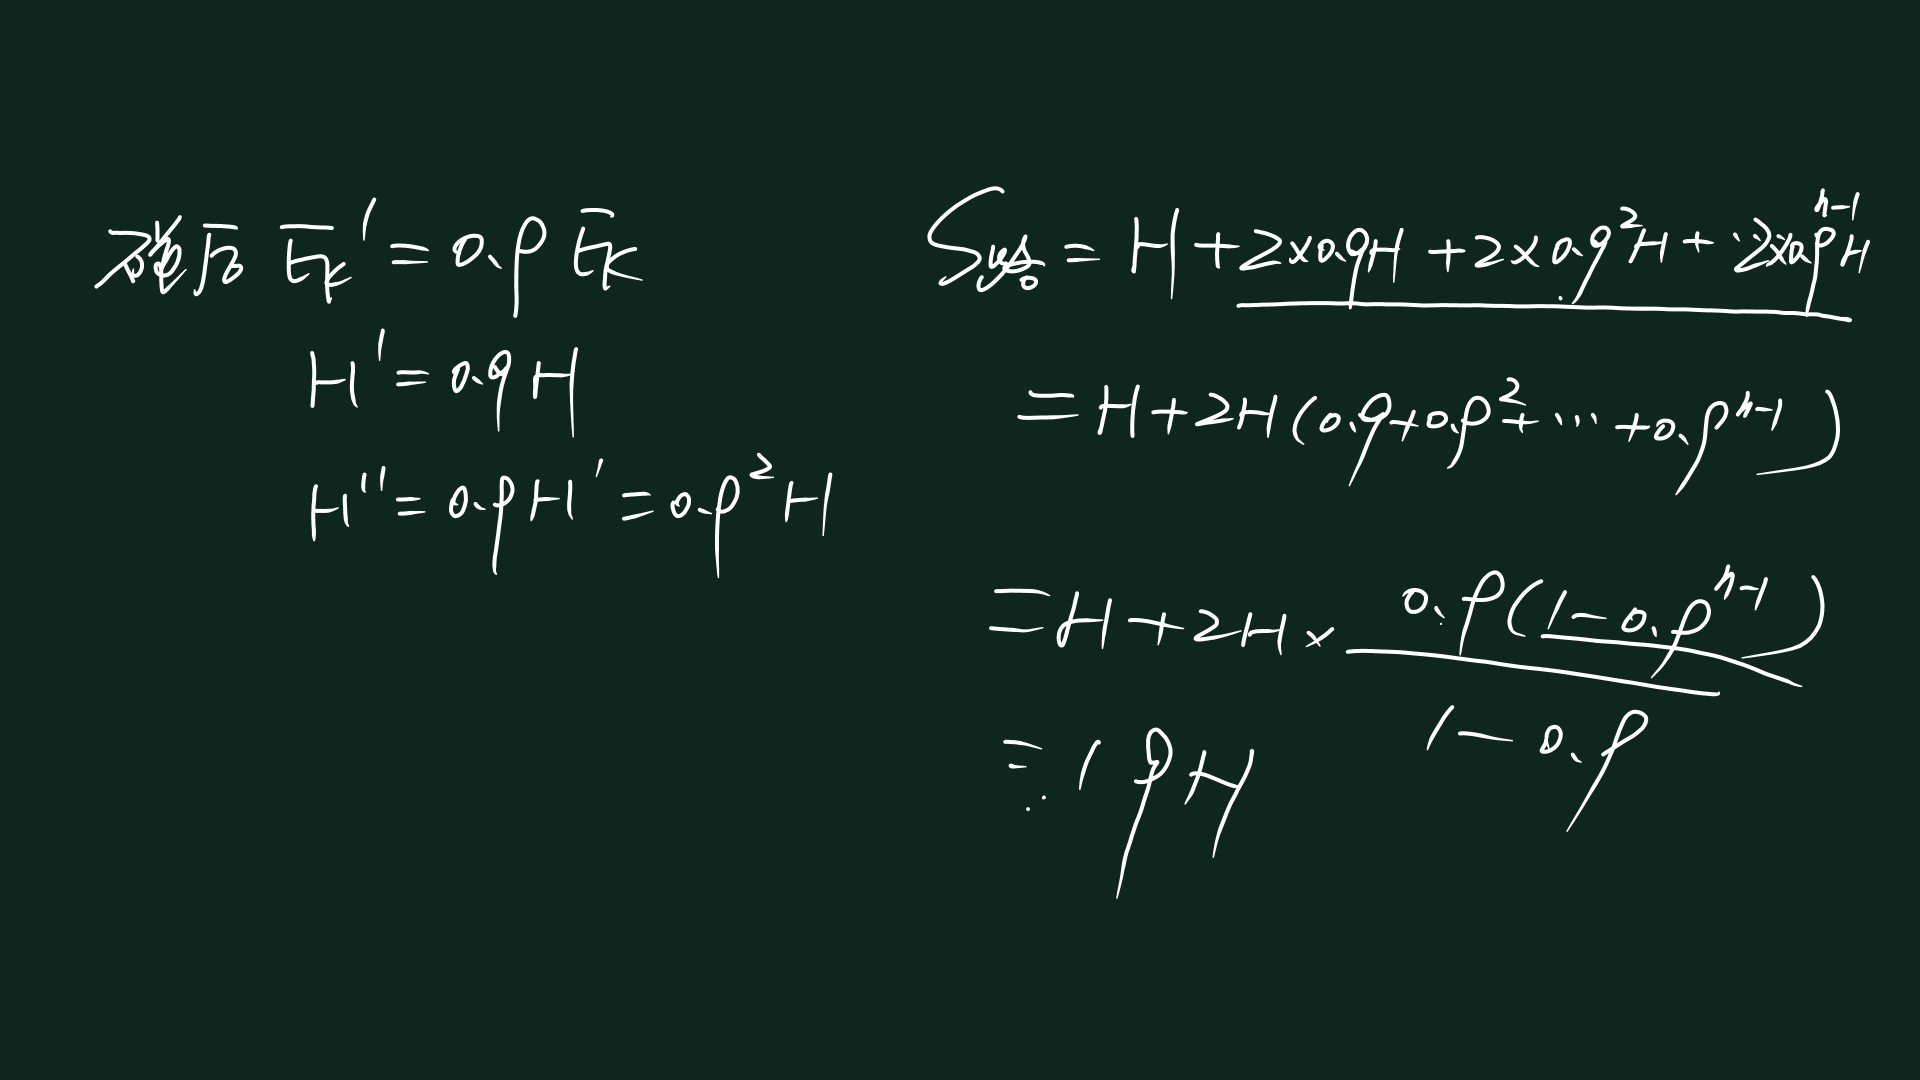 碰后 Eₖ' = 0.9 Eₖ
H' = 0.9 H
H'' = 0.9 H' = 0.9² H
= H + 2×0.9H + 2×0.9²H + ··2×0.9ⁿ⁻¹H
= H + 2H (0.9 + 0.9² + ··· + 0.9ⁿ⁻¹)
= H + 2H × 0.9(1 − 0.9ⁿ⁻¹) / 1 − 0.9
= 19H